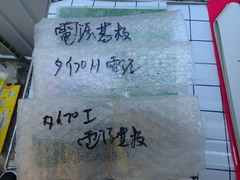 電源基板
タイプH 電源
タイプI
電源基板